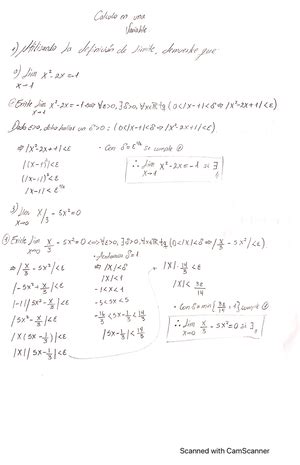 Calculo en una
Variable
1) Utilizando la definición de límite, demuestre que
a) lim x²-2x=-1
x→1
Existe lim x²-2x=-1 ⟺ ∀ε>0, ∃δ>0, ∀x∈R tq (0<|x-1|<δ ⟹ |x²-2x+1|<ε)
x→1
Dado ε>0, debo hallar un δ>0: (0<|x-1|<δ ⟹ |x²-2x+1|<ε)
⟹ |x²-2x+1|<ε
|(x-1)²|<ε
(|x-1|)²<ε
|x-1|<ε^½
- Con δ=ε^½ se cumple
∴ lim x²-2x=-1 si ∃
x→1
b) lim x/3 - 5x²=0
x→0
Existe lim x/3 - 5x²=0 ⟺ ∀ε>0, ∃δ>0, ∀x∈R tq (0<|x|<δ ⟹ |x/3 - 5x²|<ε)
x→0
⟹ |x/3 - 5x²|<ε
|-5x²+x/3|<ε
|-1||5x²-x/3|<ε
|5x²-x/3|<ε
|x(5x-1/3)|<ε
|x||5x-1/3|<ε
δ=1
⟹ |x|<δ
|x|<1
-1<x<1
-5<5x<5
-16/3<5x-1/3<14/3
|5x-1/3|<14/3
|x|·14/3<ε
|x|<3ε/14
- Con δ=min{3ε/14, 1}
∴ lim x/3 - 5x²=0 si ∃
x→0
Scanned with CamScanner